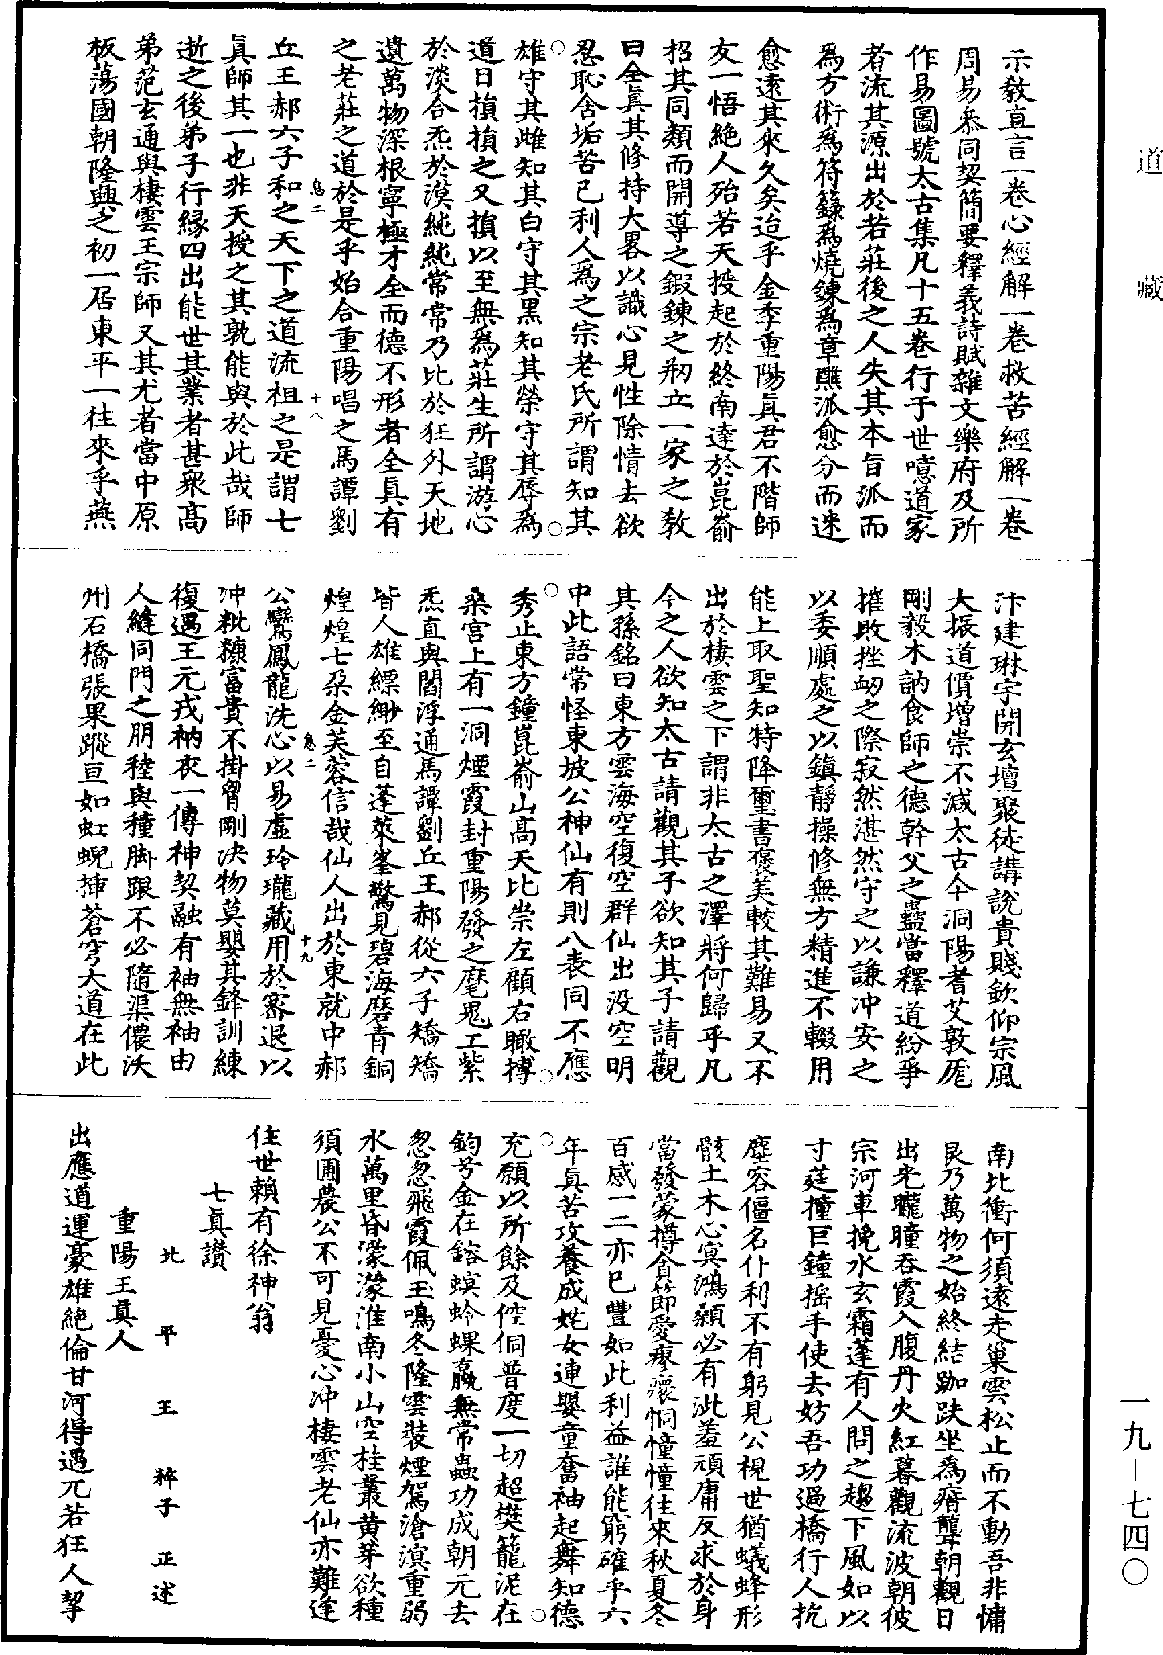 道藏
示教直言一卷心經解一卷救苦經解一卷
周易叅同契簡要釋義詩賦雜文樂府及所
作易圖號太古集凡十五卷行于世噫道家
者流其源出於若莊後之人失其本旨派而
為方術為符籙為燒鍊為章醮派愈分而迷
愈遠其來久矣迨乎金季重陽真君不階師
友一悟絕人殆若天授起於終南達於崑崳
招其同類而開導之鍛鍊之剏立一家之教
曰全真其修持大畧以識心見性除情去欲
忍恥含垢苦己利人為之宗老氏所謂知其
雄守其雌知其白守其黑知其榮守其辱為
道日損損之又損以至無為莊生所謂游心
於淡合炁於漠純純常常乃比於狂外天地
遺萬物深根寧極才全而德不形者全真有
之老莊之道於是乎始合重陽唱之馬譚劉
丘王郝六子和之天下之道流祖之是謂七
真師其一也非天授之其孰能與於此哉師
逝之後弟子行緣四出能世其業者甚衆高
弟范玄通與棲雲王宗師又其尤者當中原
板蕩國朝隆興之初一居東平一往來乎燕
汴建琳宇開玄壇聚徒講說貴賤欽仰宗風
大振道價增崇不減太古今洞陽耆艾敦厖
剛毅木訥食師之德幹父之蠱當釋道紛爭
摧敗挫衂之際寂然湛然守之以謙冲安之
以委順處之以鎮靜操修無方精進不輟用
能上取聖知特降璽書褒美較其難易又不
出於棲雲之下謂非太古之澤將何歸乎凡
今之人欲知太古請觀其子欲知其子請觀
其孫銘曰東方雲海空復空群仙出没空明
中此語常怪東坡公神仙有則八表同不應
秀止東方鐘崑崳山高天比崇左顧右瞰搏
桑宮上有一洞煙霞封重陽發之麾鬼工紫
炁直與閻浮通馬譚劉丘王郝從六子矯矯
皆人雄縹緲至自蓬萊峯驚見碧海磨青銅
煌煌七朵金芙蓉信哉仙人出於東就中郝
公鸞鳳龍洗心以易虛玲瓏藏用於密退以
沖粃糠富貴不掛胷剛決物莫嬰其鋒訓練
復遇王元戎衲衣一傳神契融有袖無袖由
人縫同門之朋稑與穜脚跟不必隨渠儂沃
州石橋張果蹤亘如虹蜺揷蒼穹大道在此
南北衝何須遠走巢雲松止而不動吾非慵
艮乃萬物之始終結跏趺坐為瘖聾朝觀日
出光曨瞳吞霞入腹丹火紅暮觀流波朝彼
宗河車挽水玄霜蓬有人問之趨下風如以
寸莛撞巨鐘摇手使去妨吾功過橋行人抗
塵容傴名仆利不有躬見公視世猶蟻蜂形
骸土木心冥鴻顙必有泚羞頑庸反求於身
當發蒙樽貪節愛瘳瘝恫憧憧往來秋夏冬
百感一二亦已豐如此利益誰能窮確乎六
年真苦攻養成姹女連嬰童奮袖起舞知德
充願以所餘及倥侗普度一切超樊籠泥在
鈞兮金在鎔螟蛉蜾蠃無常蟲功成朝元去
怱怱飛霞佩玉鳴冬隆雲裝煙駕滄溟重弱
水萬里昏濛濛淮南小山空桂叢黃芽欲種
須圃農公不可見憂心冲棲雲老仙亦難逢
住世賴有徐神翁
七真讚
北平王粹子正述
重陽王真人
出應道運豪雄絕倫甘河得遇兀若狂人挈
息二
十八
息二
十九
一九—七四〇